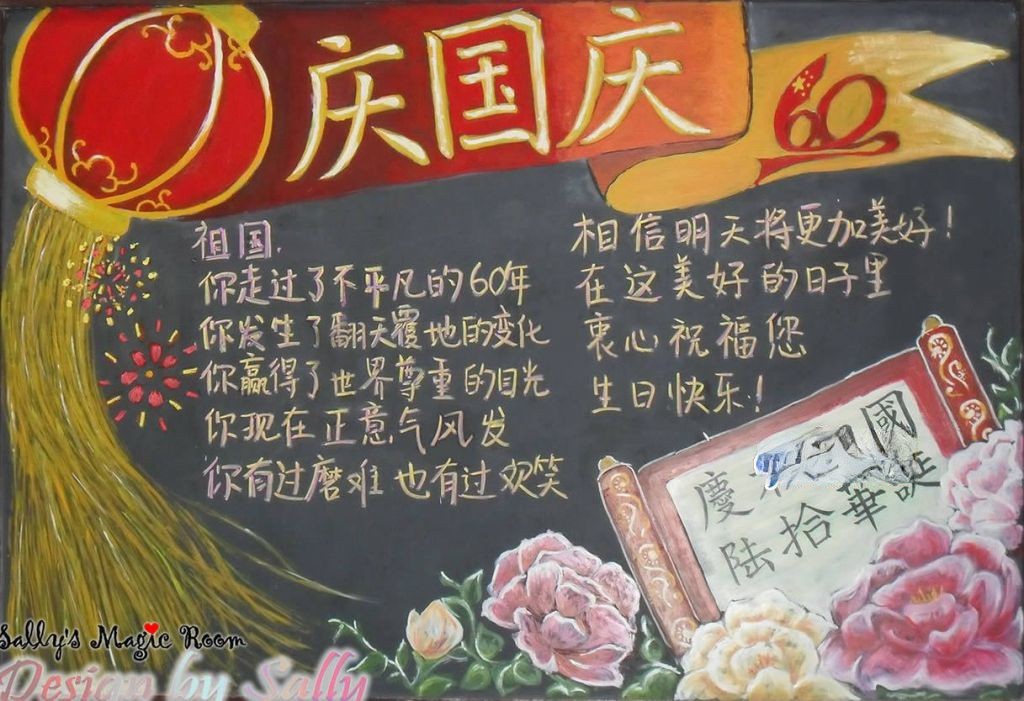 庆国庆
60
祖国.
你走过了不平凡的60年
你发生了翻天覆地的变化
你赢得了世界尊重的目光
你现在正意气风发
你有过磨难也有过欢笑
相信明天将更加美好!
在这美好的日子里
衷心祝福您
生日快乐!
國
慶
陆拾華诞
Sally's Magic Room
Design by Sally